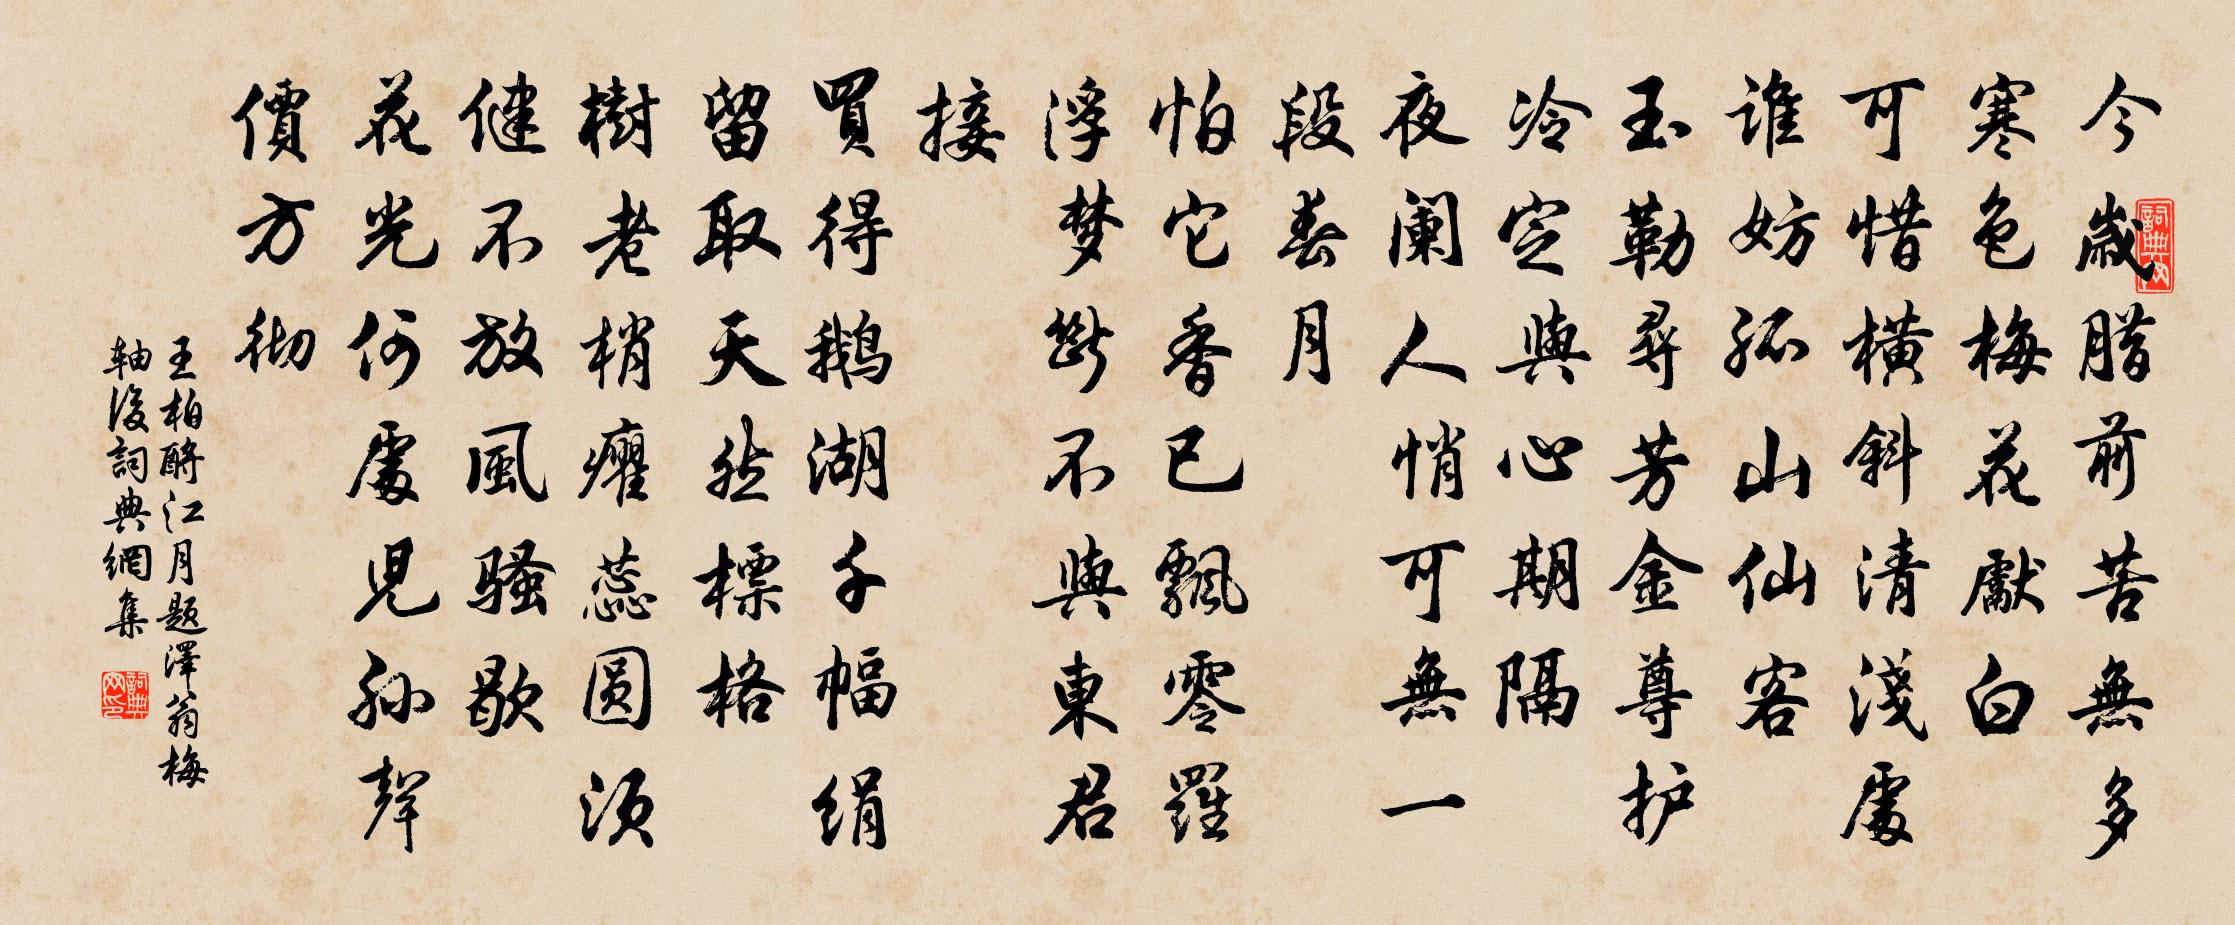 今歲腊前苦無多
寒色梅花獻白
可惜橫斜清淺處
谁妨孤山仙客
玉勒尋芳金尊护
冷定與心期隔
夜阑人悄可無一
段春月
怕它香已飄零羅
浮梦斷不與東君
接
買得鹅湖千幅绢
留取天然標格
樹老梢癯蕊圆须
健不放風骚歇
花光何處児孙聲
價方彻
王柏酹江月题澤翁梅
軸後詞典網集
詞典网
詞典网印